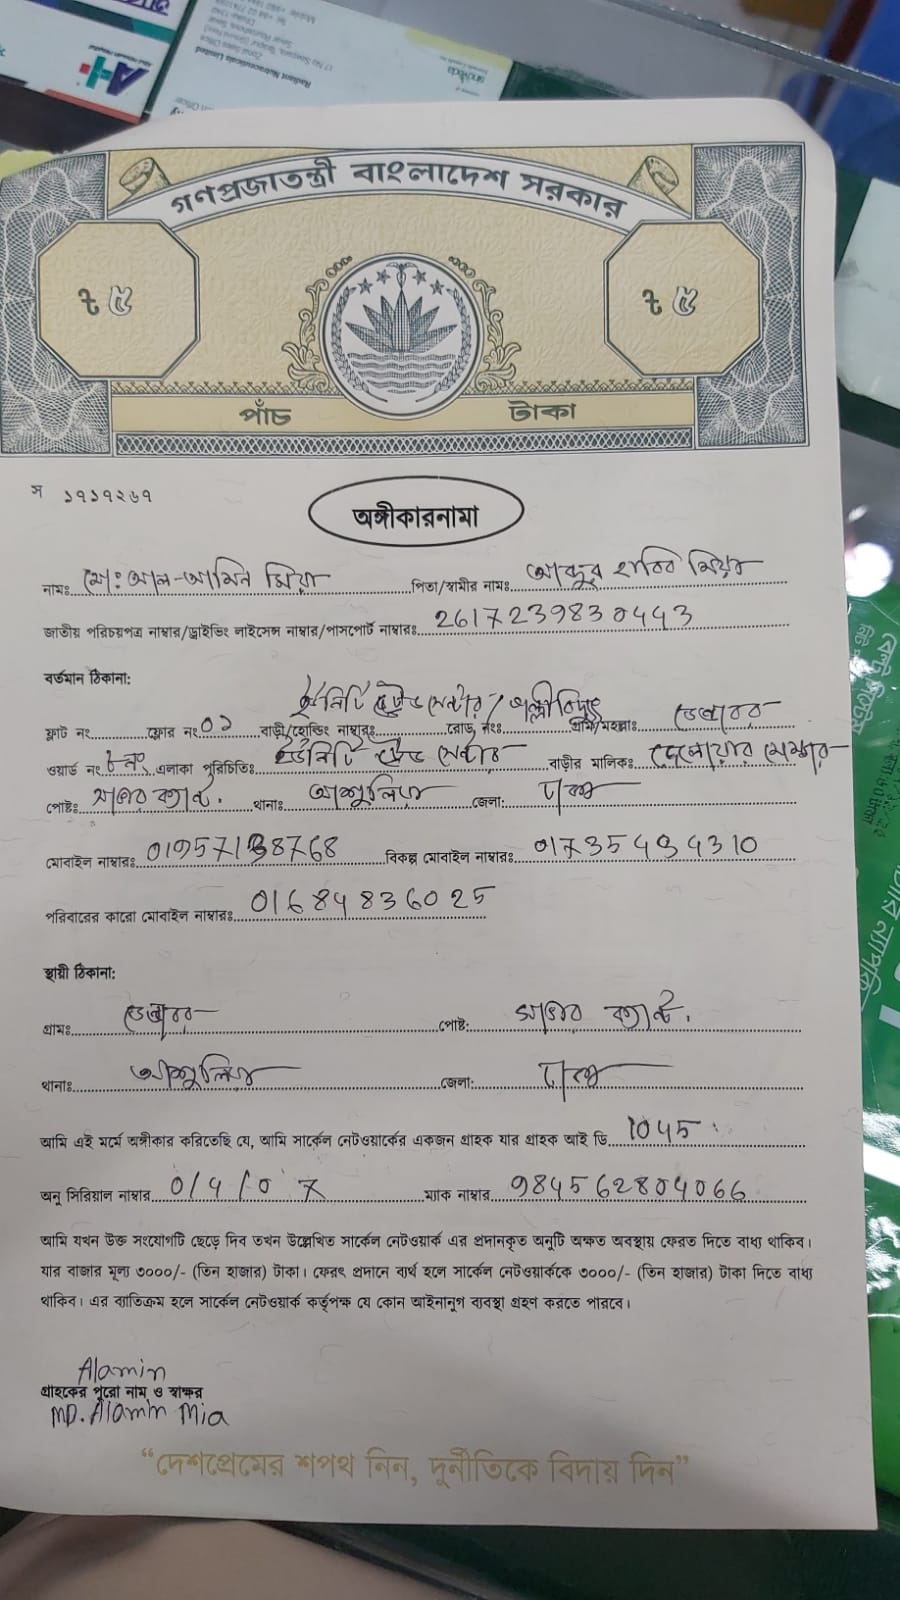 Radiant Nutraceuticals Limited
গণপ্রজাতন্ত্রী বাংলাদেশ সরকার
৳ ৫
৳ ৫
পাঁচ টাকা
স ১৭১৭২৬৭
অঙ্গীকারনামা
নামঃ মো: আল-আমিন মিয়া পিতা/স্বামীর নামঃ হাবিব মিয়া
জাতীয় পরিচয়পত্র নাম্বার/ড্রাইভিং লাইসেন্স নাম্বার/পাসপোর্ট নাম্বারঃ 2617239830443
বর্তমান ঠিকানা:
ইউনিটি ট্রেড সেন্টার / পল্লীবিদ্যুৎ
ফ্লাট নং ফ্লোর নং ০১ বাড়ী/হোল্ডিং নাম্বারঃ রোড নংঃ গ্রাম/মহল্লাঃ ডেন্ডাবর
ওয়ার্ড নং ৮ নং এলাকা পরিচিতিঃ ইউনিটি ট্রেড সেন্টার বাড়ীর মালিকঃ দেলোয়ার মেম্বার
পোষ্টঃ সাভার ক্যান্ট. থানাঃ আশুলিয়া জেলা: ঢাকা
মোবাইল নাম্বারঃ বিকল্প মোবাইল নাম্বারঃ 01735494310
পরিবারের কারো মোবাইল নাম্বারঃ 01684836025
স্থায়ী ঠিকানা:
গ্রামঃ ডেন্ডাবর পোষ্ট: সাভার ক্যান্ট.
থানাঃ আশুলিয়া জেলা: ঢাকা
আমি এই মর্মে অঙ্গীকার করিতেছি যে, আমি সার্কেল নেটওয়ার্কের একজন গ্রাহক যার গ্রাহক আই ডি 1045
অনু সিরিয়াল নাম্বার ম্যাক নাম্বার 984562804066
আমি যখন উক্ত সংযোগটি ছেড়ে দিব তখন উল্লেখিত সার্কেল নেটওয়ার্ক এর প্রদানকৃত অনুটি অক্ষত অবস্থায় ফেরত দিতে বাধ্য থাকিব।
যার বাজার মূল্য ৩০০০/- (তিন হাজার) টাকা। ফেরৎ প্রদানে ব্যর্থ হলে সার্কেল নেটওয়ার্ককে ৩০০০/- (তিন হাজার) টাকা দিতে বাধ্য
থাকিব। এর ব্যতিক্রম হলে সার্কেল নেটওয়ার্ক কর্তৃপক্ষ যে কোন আইনানুগ ব্যবস্থা গ্রহণ করতে পারবে।
Alamin
গ্রাহকের পুরো নাম ও স্বাক্ষর
MD. Alamin Mia
“দেশপ্রেমের শপথ নিন, দুর্নীতিকে বিদায় দিন”